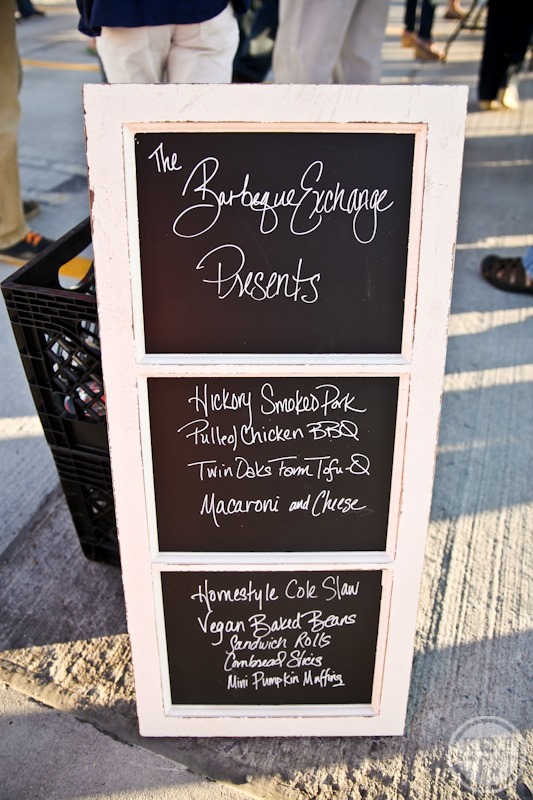 The
Barbeque Exchange
Presents
Hickory Smoked Pork
Pulled Chicken BBQ
Twin Oaks Farm Tofu-Q
Macaroni and Cheese
Homestyle Cole Slaw
Vegan Baked Beans
Sandwich Rolls
Cornbread Slices
Mini Pumpkin Muffins